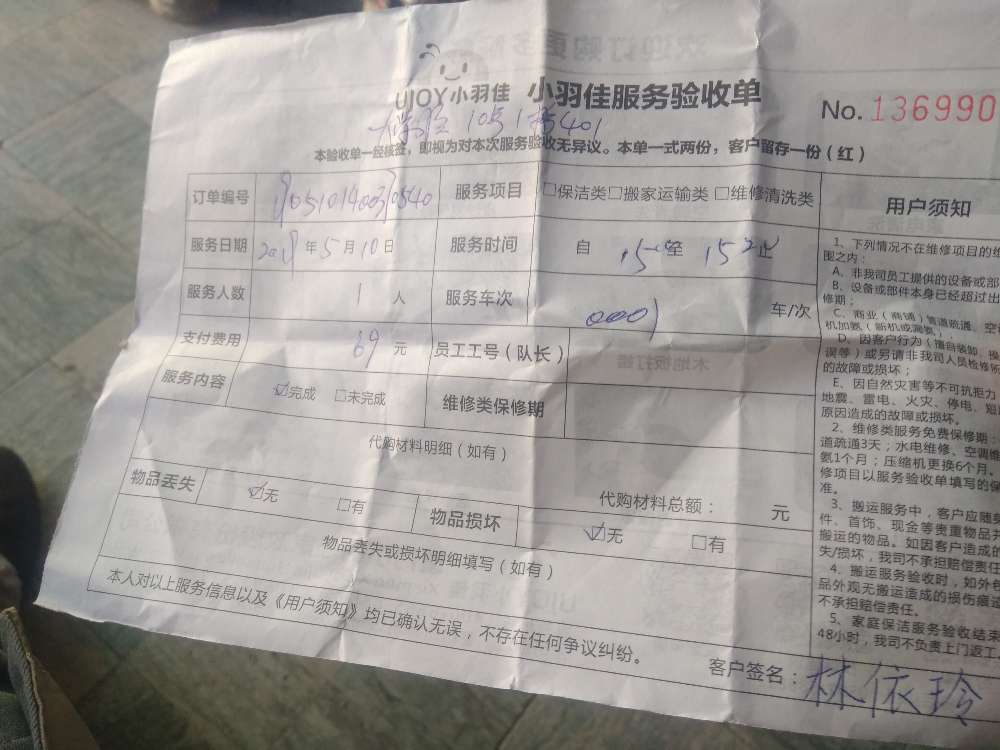 UJOY小羽佳 小羽佳服务验收单
No. 136990
10号 401
本验收单一经接签，即视为对本次服务验收无异议。本单一式两份，客户留存一份（红）
订单编号 服务项目 □保洁类□搬家运输类 □维修清洗类
服务日期 年5月10日 服务时间 自 至 止
服务人数 1 人 服务车次 0001 车/次
支付费用 69 元 员工工号（队长）
服务内容 ☑完成 □未完成 维修类保修期
代购材料明细（如有）
代购材料总额： 元
物品丢失 ☑无 □有 物品损坏 ☑无 □有
物品丢失或损坏明细填写（如有）
本人对以上服务信息以及《用户须知》均已确认无误，不存在任何争议纠纷。
客户签名：林依玲
用户须知
1、下列情况不在维修项目的维
围之内：
A、非我司员工提供的设备或部
B、设备或部件本身已经超过出
修期；
C、商业（商铺）管道疏通、空
机加氨（新机或漏氨）
D、因客户行为（擅自装卸、操
误等）或另请非我司人员检修所
的故障或损坏；
E、因自然灾害等不可抗拒力
地震、雷电、火灾、停电、短
原因造成的故障或损坏。
2、维修类服务免费保修期：
道疏通3天；水电维修、空调维
氨1个月；压缩机更换6个月。
修项目以服务验收单填写的保
准。
3、搬运服务中，客户应随
件、首饰、现金等贵重物品并
搬运的物品。如因客户造成的
失/损坏，我司不承担赔偿责任
4、搬运服务验收时，如外
品外观无搬运造成的损伤痕迹
不承担赔偿责任。
5、家庭保洁服务验收结束
48小时，我司不负责上门返工